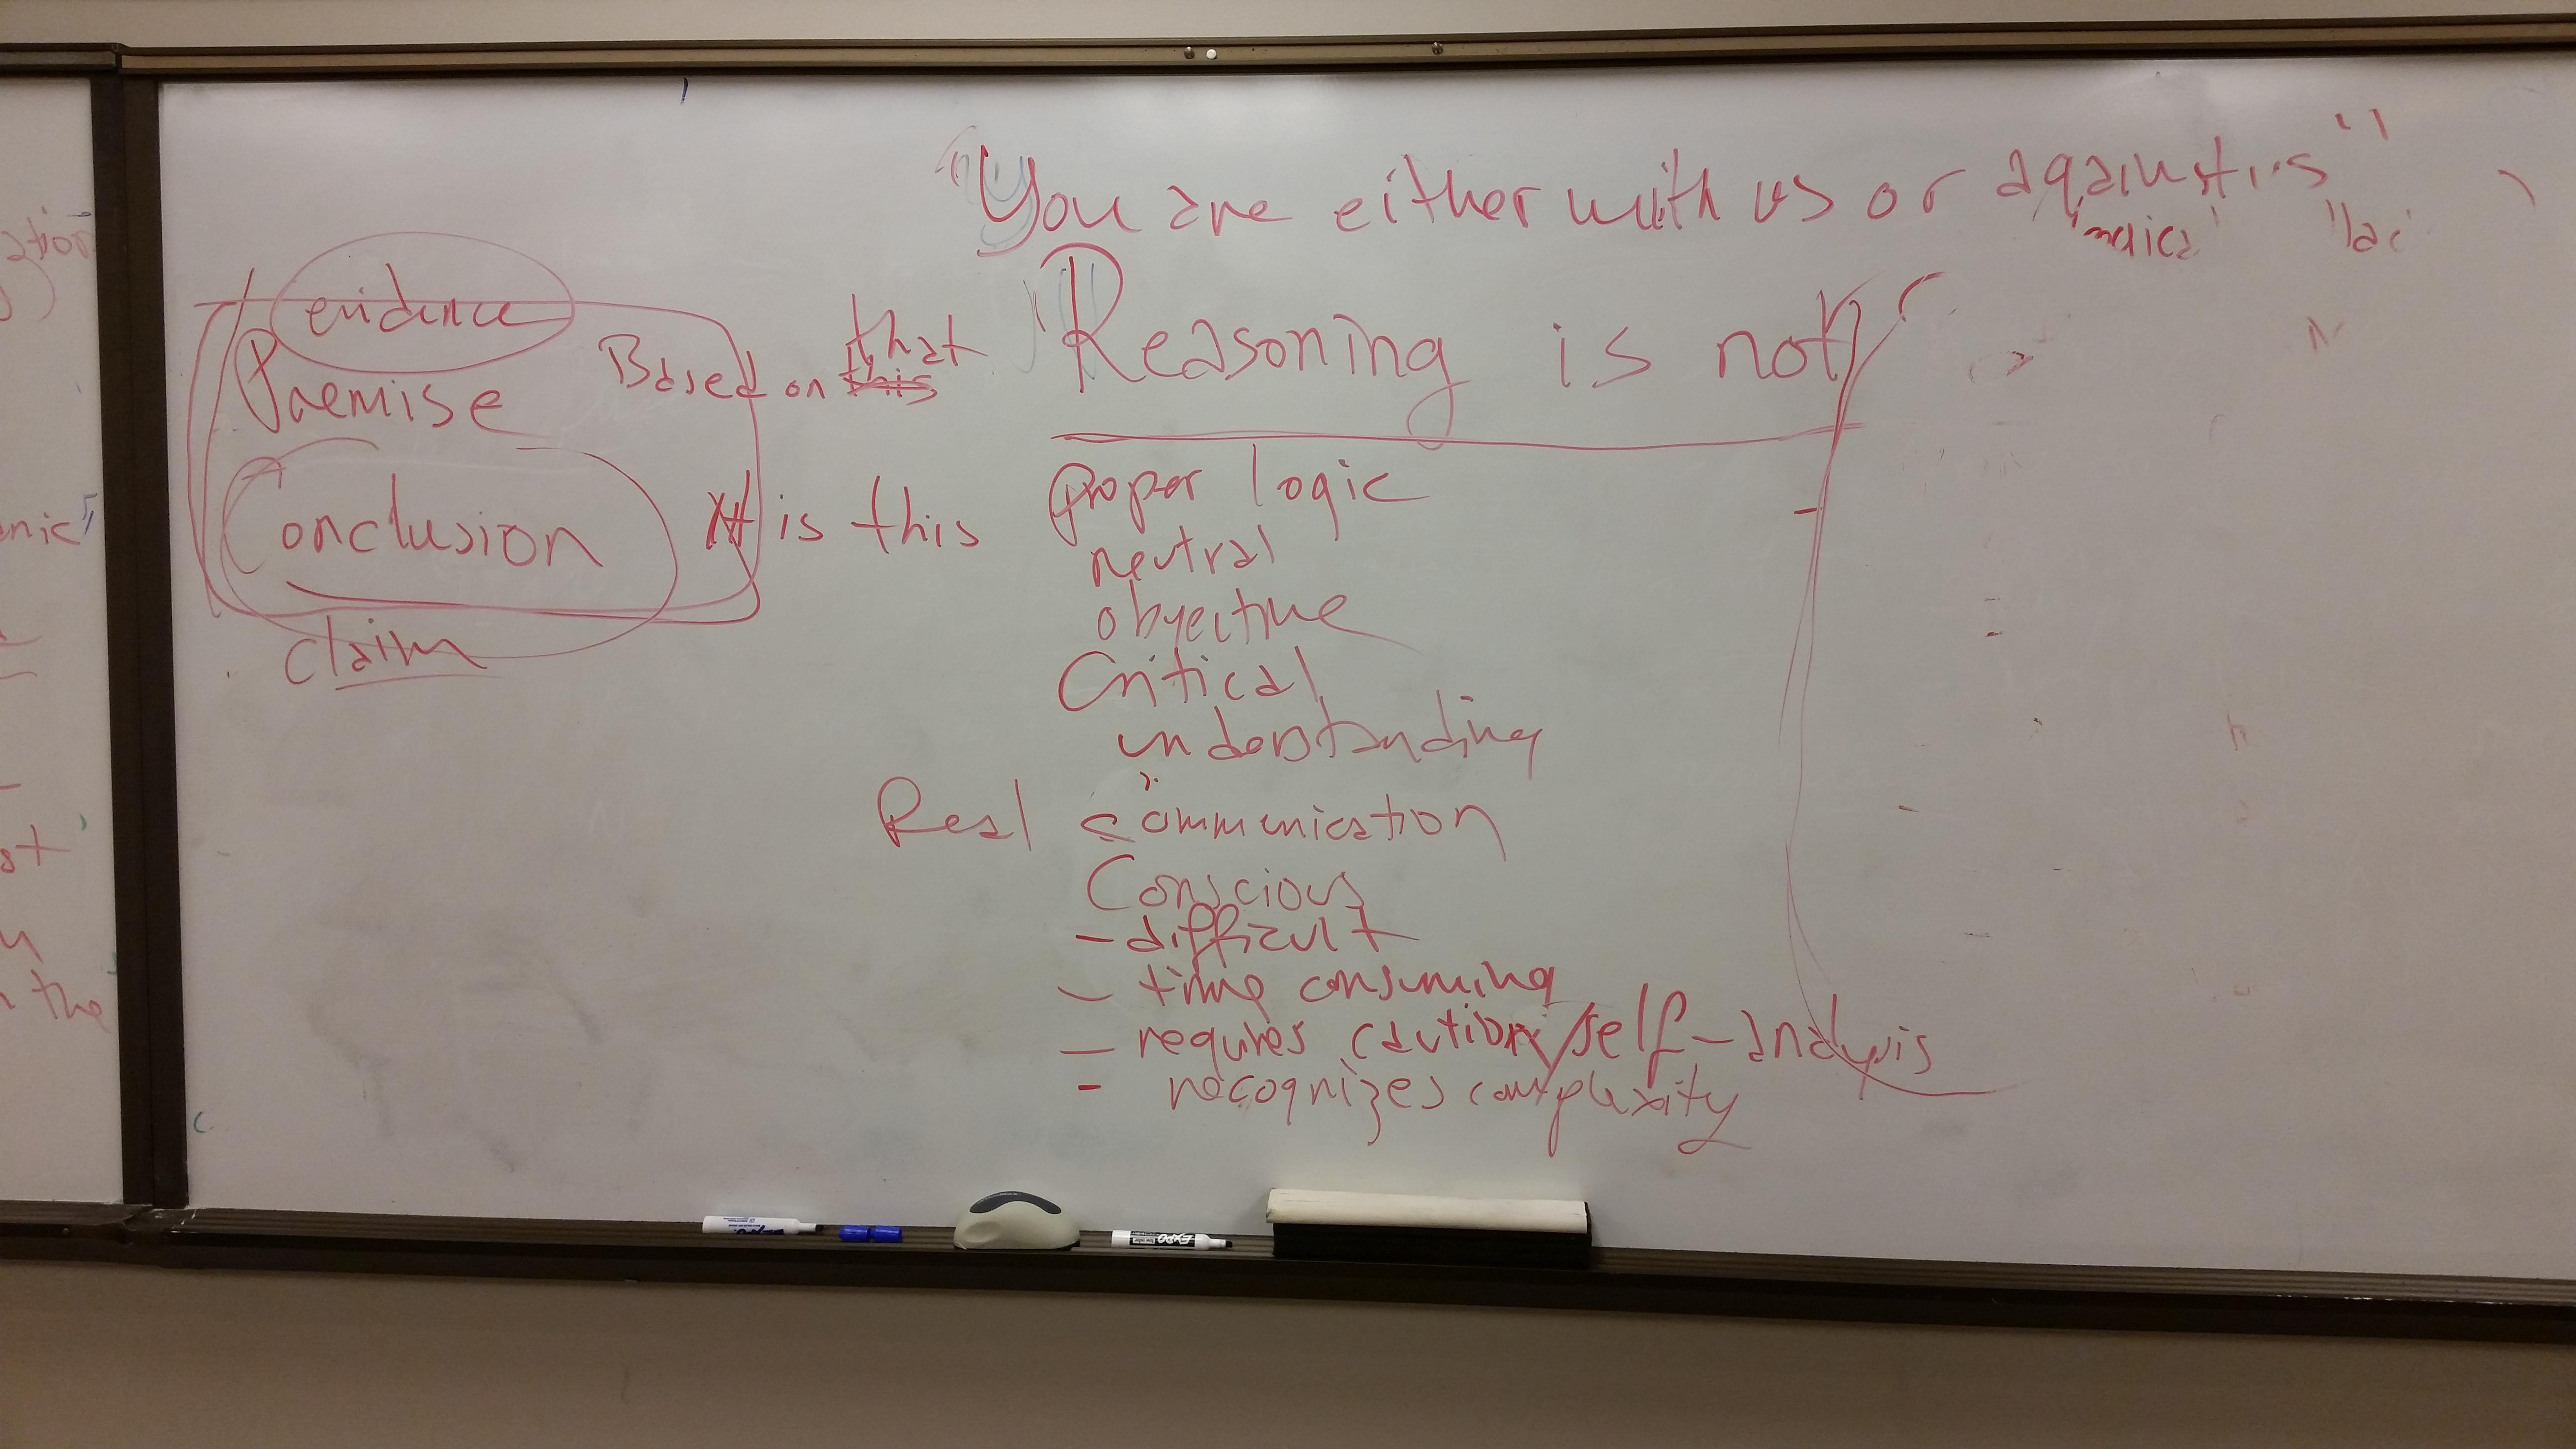 "You are either with us or against us"
evidence
Premise
Based on that this
Conclusion
It is this
claim
Reasoning is not
proper logic
neutral
objective
Critical
understanding
Real communication
Conscious
- difficult
- time consuming
- requires caution/self-analysis
- recognizes complexity
st
the
EXPO